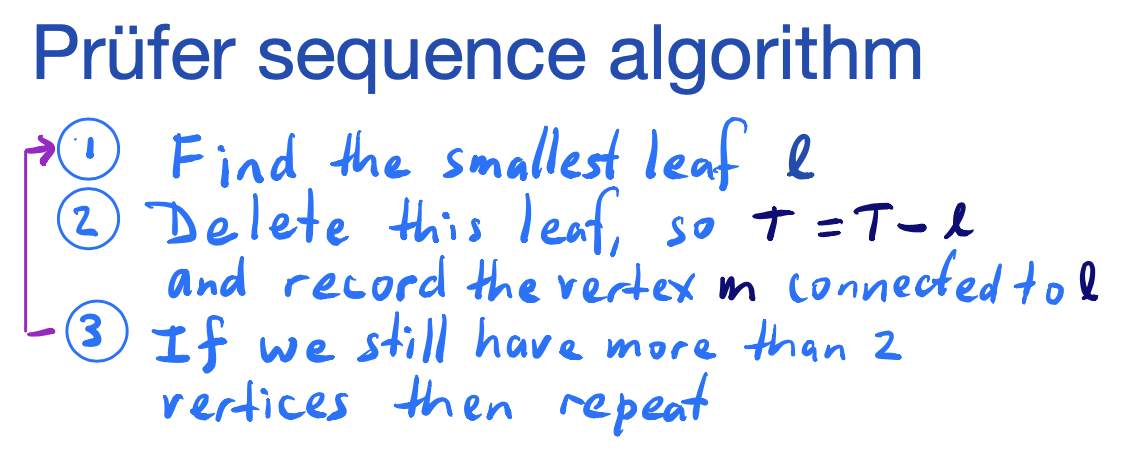 Prüfer sequence algorithm
1 Find the smallest leaf l
2 Delete this leaf, so T = T - l
and record the vertex m connected to l
3 If we still have more than 2
vertices then repeat